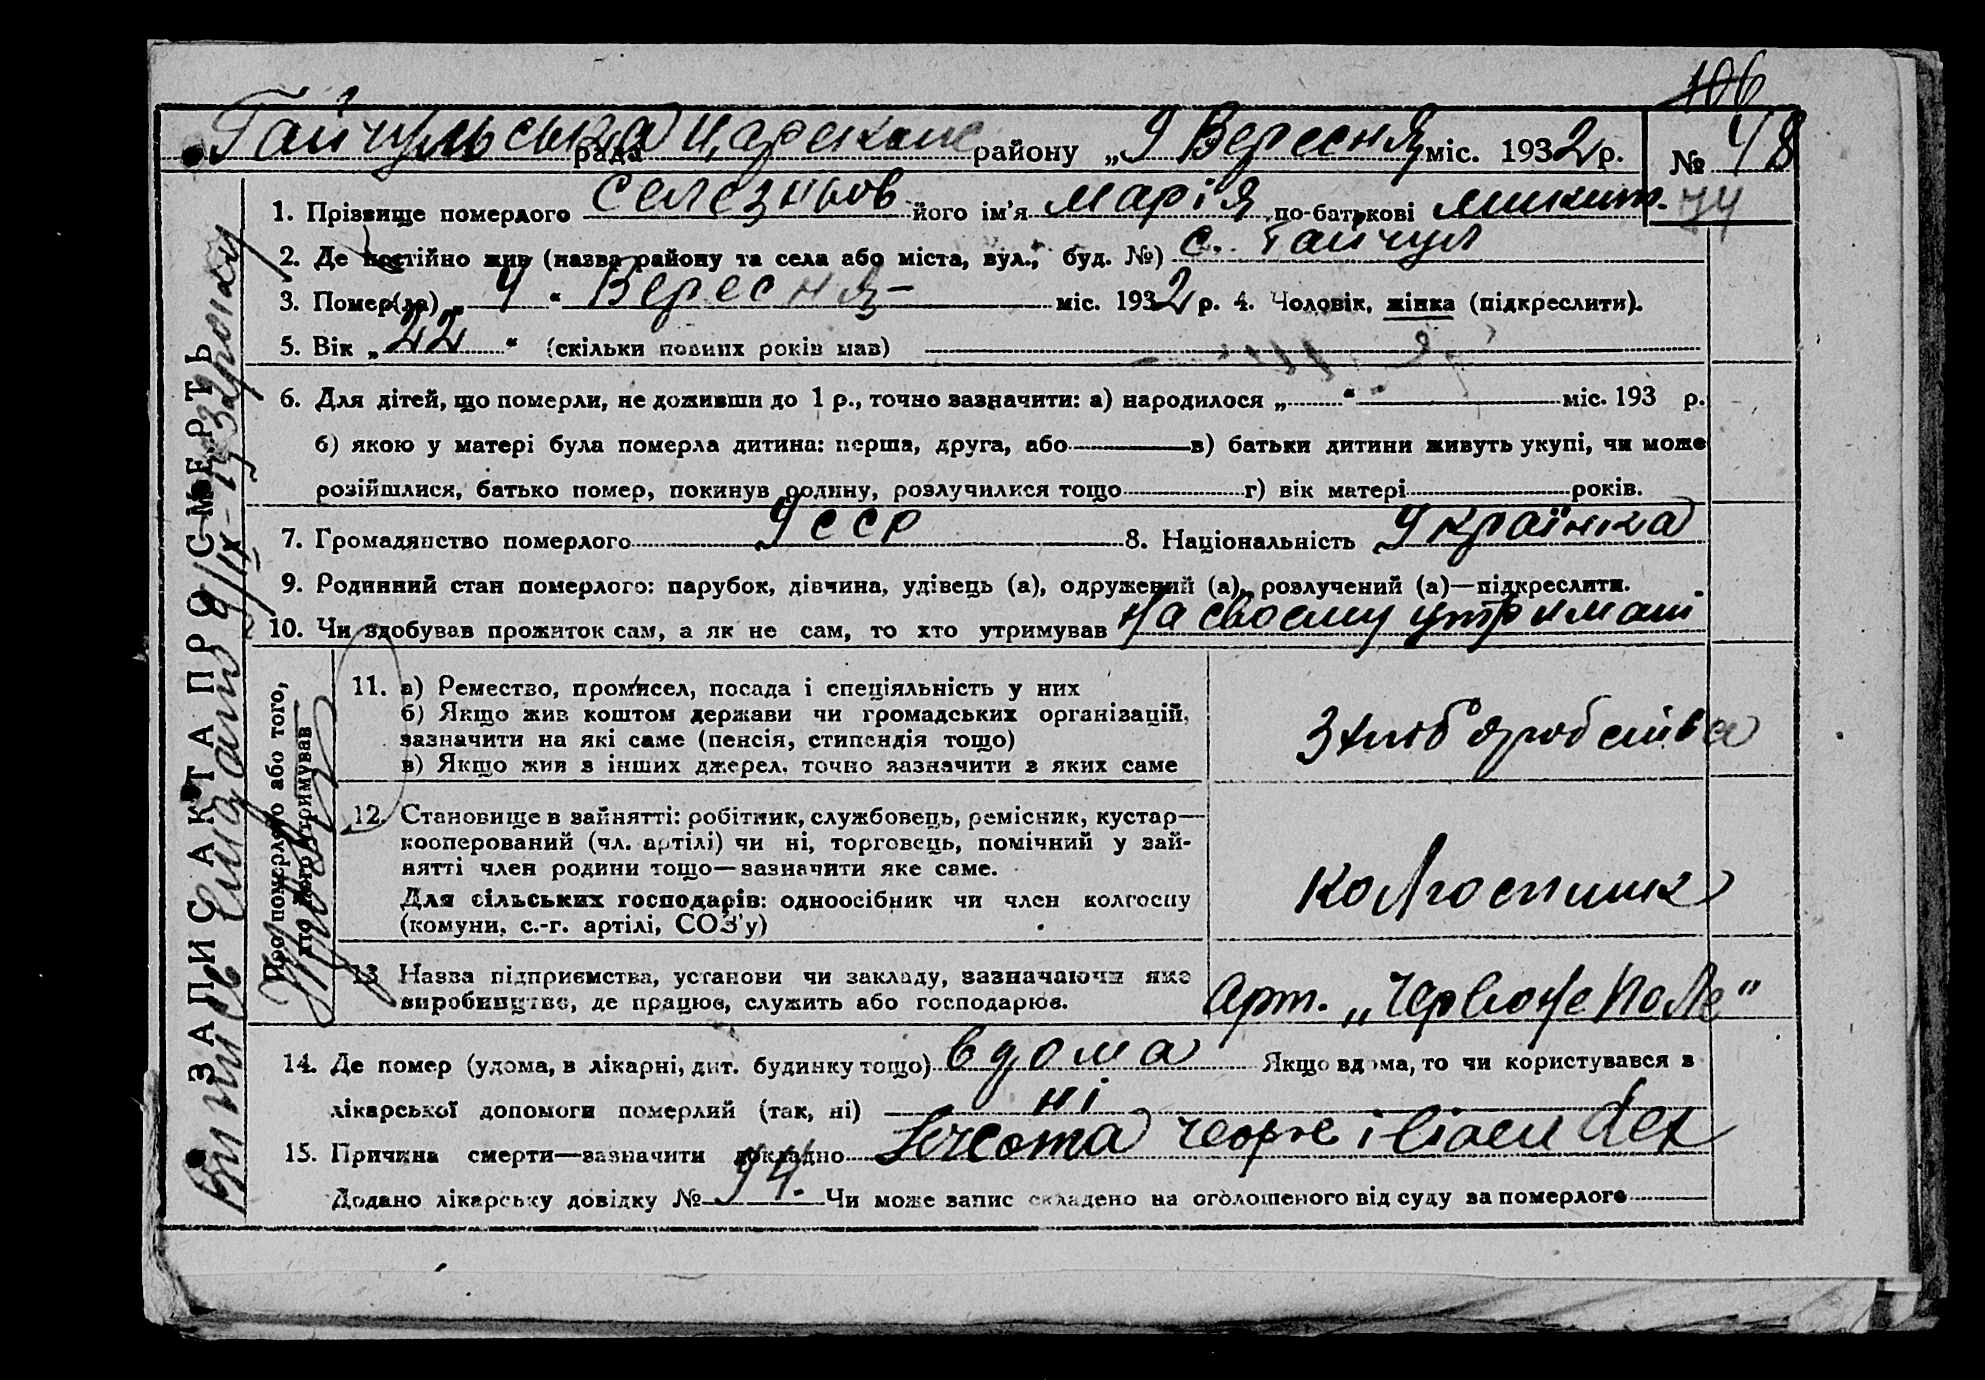 106
Гайчульська рада Царекон району „9 Вересня міс. 1932 р. № 48
74
1. Прізвище померлого Селезньов його ім'я Марія по-батькові Микит.
2. Де постійно жив (назва району та села або міста, вул., буд. №) с. Гайчул
3. Помер(ла) „ 4 “ Вересня – міс. 1932 р. 4. Чоловік, жінка (підкреслити).
5. Вік „ 22 “ (скільки повних років мав)
6. Для дітей, що померли, не доживши до 1 р., точно зазначити: а) народилося „ “ міс. 193 р.
б) якою у матері була померла дитина: перша, друга, або в) батьки дитини живуть укупі, чи може
розійшлися, батько помер, покинув родину, розлучилися тощо г) вік матері років.
7. Громадянство померлого УССР 8. Національність Українка
9. Родинний стан померлого: парубок, дівчина, удівець (а), одружений (а), розлучений (а)—підкреслити.
10. Чи здобував прожиток сам, а як не сам, то хто утримував На своєму утриман
ЗАПИС АКТА ПРО СМЕРТЬ
Про померлого або того, хто його утримував
11. а) Ремество, промисел, посада і спеціяльність у них
б) Якщо жив коштом держави чи громадських організацій,
зазначити на які саме (пенсія, стипендія тощо)
в) Якщо жив з інших джерел, точно зазначити з яких саме
З хліборобства
12. Становище в зайнятті: робітник, службовець, ремісник, кустар—
кооперований (чл. артілі) чи ні, торговець, помічний у зай-
нятті член родини тощо—зазначити яке саме.
Для сільських господарів: одноосібник чи член колгоспу
(комуни, с.-г. артілі, СОЗ'у)
колгоспник
13 Назва підприємства, установи чи закладу, зазначаючи яке
виробництво, де працює, служить або господарює.
Арт. „Червоне Поле"
14. Де помер (удома, в лікарні, дит. будинку тощо) вдома Якщо вдома, то чи користувався з
лікарської допомоги померлий (так, ні) ні
15. Причина смерти—зазначити докладно
Додано лікарську довідку № 94. Чи може запис складено на оголошеного від суду за померлого